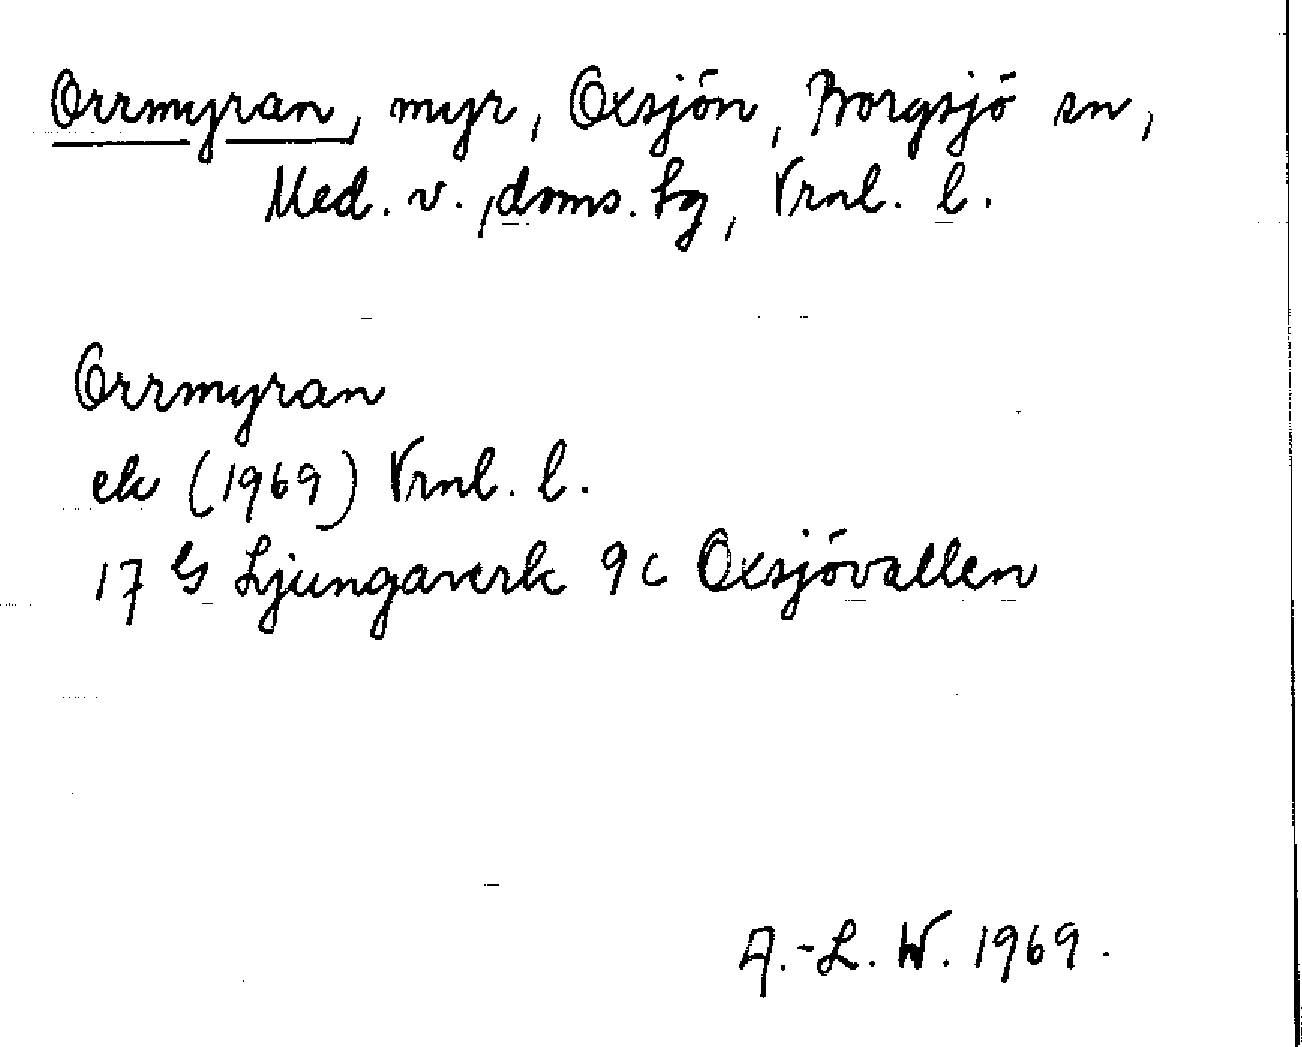 Orrmyran, myr, Oxsjön, Borgsjö sn,
Med. v., doms. hg, Vrnl. l.
Orrmyran
ek (1969) Vrnl. l.
17 G Ljungaverk 9 c Oxsjövallen
A.-L. W. 1969.